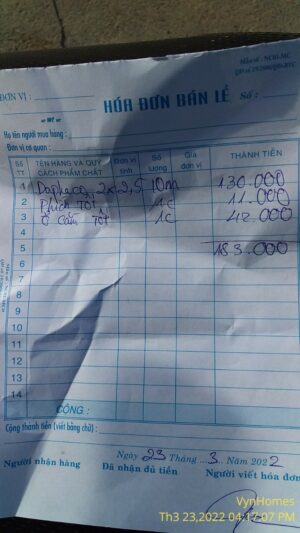 Mẫu số : NCBL-MC
ĐƠN VỊ :
HÓA ĐƠN BÁN LẺ Số :
Họ tên người mua hàng :
Đơn vị cơ quan :
Số TT TÊN HÀNG VÀ QUY CÁCH PHẨM CHẤT Đơn vị tính Số lượng Giá đơn vị THÀNH TIỀN
1 Daphaco 2x2,5 10m 130.000
2 Phích Tốt 1c 11.000
3 Ổ Cắm Tốt 1c 42.000
4
5 183.000
6
7
8
9
10
11
12
13
14
CỘNG :
Cộng thành tiền (viết bằng chữ) :
Ngày 23 Tháng 3 Năm 2022
Người nhận hàng Đã nhận đủ tiền Người viết hóa đơn
VynHomes
Th3 23,2022 04:17:07 PM